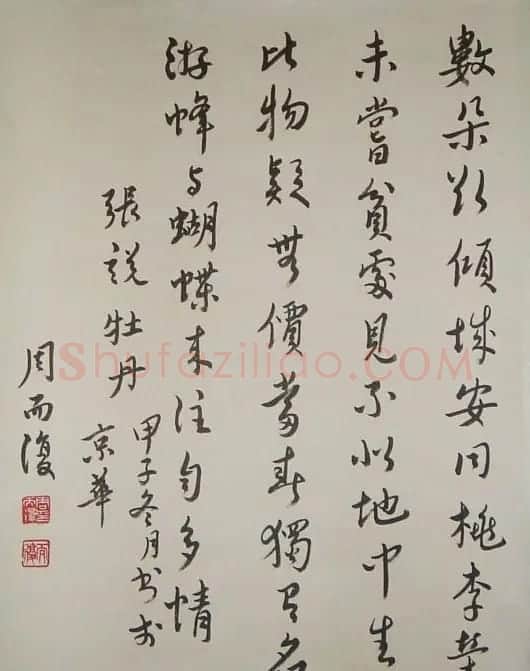 數朵欲傾城安同桃李榮
未嘗貧處見不似地中生
此物疑無價當春獨有名
游蜂与蝴蝶来往自多情
張説牡丹
甲子冬月书於
京華
周而復
Shufaziliao.COM